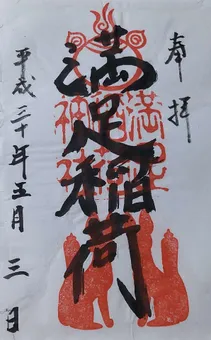 奉拝
満足稲荷
平成三十年五月三日
満足稲荷神社